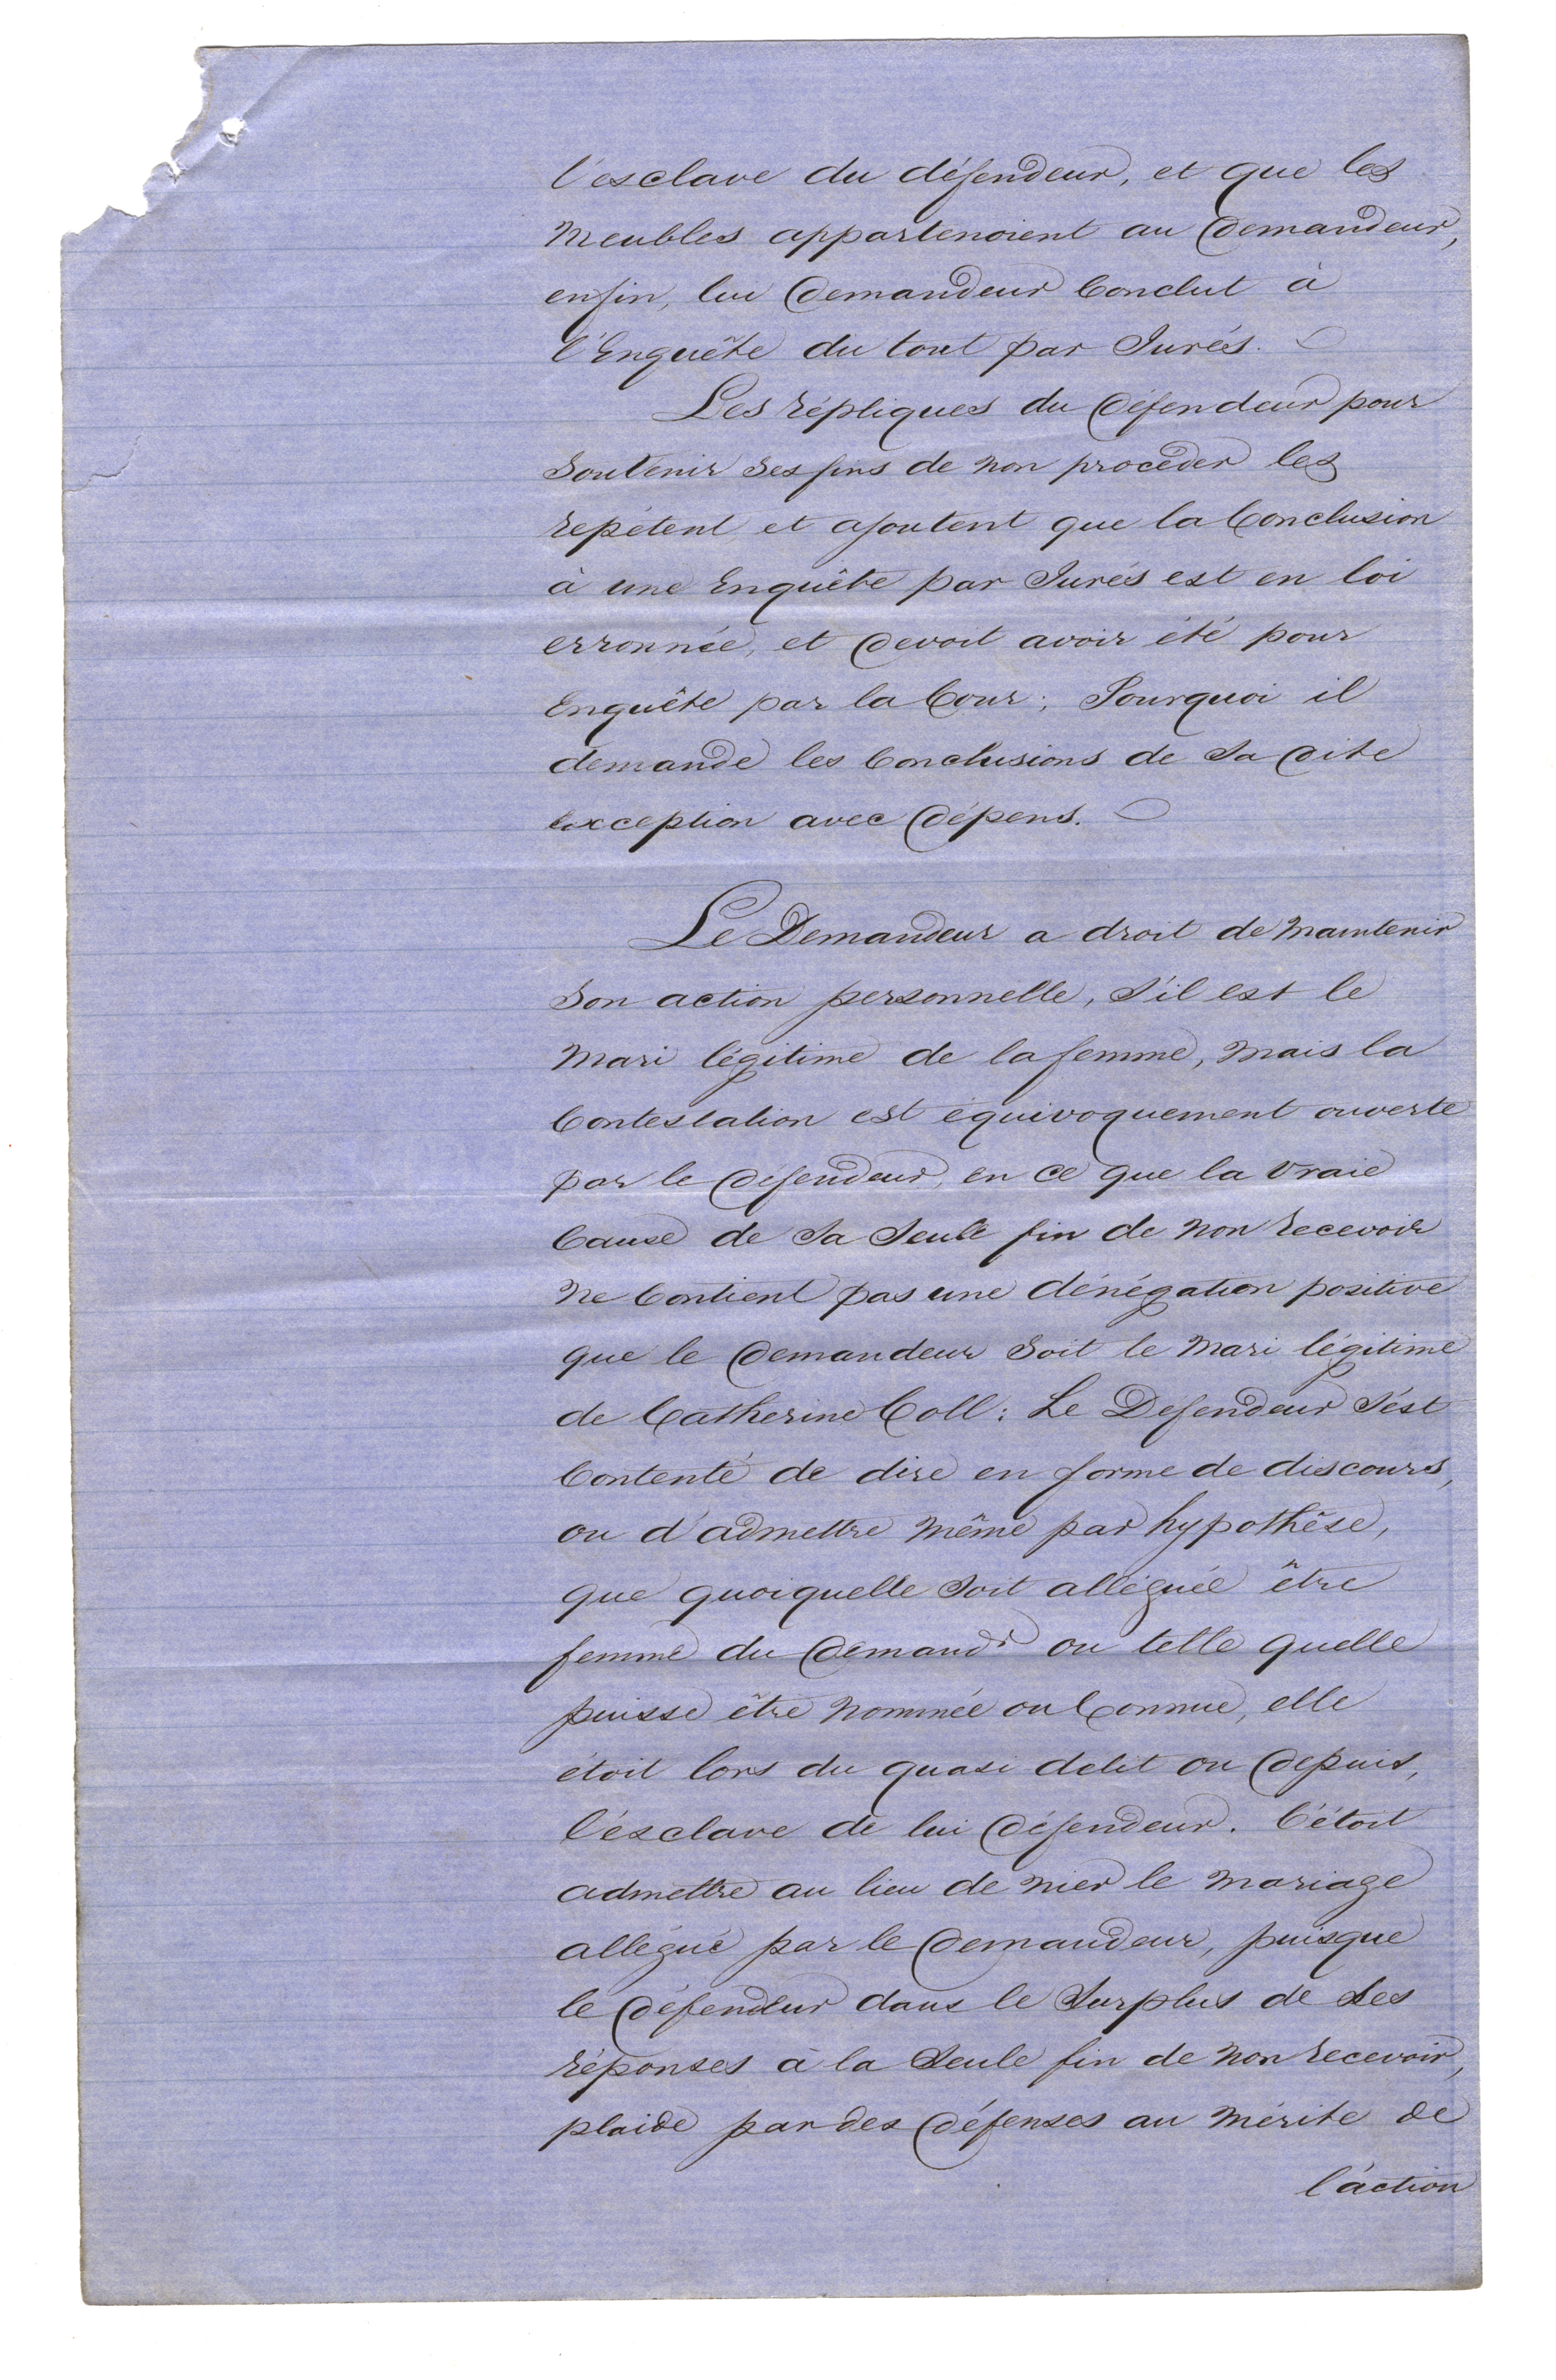 l'esclave du défendeur, et que les
Meubles appartenoient au Demandeur,
enfin, lui Demandeur Conclut à
l'Enquête du tout par Jurés.
Les répliques du Défendeur pour
Soutenir Ses fins de non procéder les
repétent et ajoutent que la Conclusion
à une Enquête par Jurés est en loi
erronnée, et Devoit avoir été pour
Enquête par la Cour; Pourquoi il
demande les Conclusions de Sa Dite
Exception avec Dépens.
Le Demandeur a droit de Maintenir
Son action personnelle, S'il est le
Mari légitime de la femme, Mais la
Contestation est équivoquement ouverte
par le Défendeur, en ce que la Vraie
Cause de Sa Seule fin de Non recevoir
Ne Contient pas une dénégation positive
que le Demandeur Soit le Mari légitime
de Catherine Coll: Le Défendeur S'est
Contenté de dire en forme de discours,
ou d'admettre Même par hypothêse,
que quoiquelle Soit alléguée être
femme du Demandr ou telle quelle
puisse être Nommée ou Connue, elle
étoit lors du quasi delit ou Depuis,
l'ésclave de lui Défendeur. C'étoit
admettre au lieu de Nier le Mariage
allégué par le Demandeur, puisque
le Défendeur dans le Surplus de Ses
réponses à la Seule fin de Non recevoir,
plaide par des Défenses au Mérite de
l'action